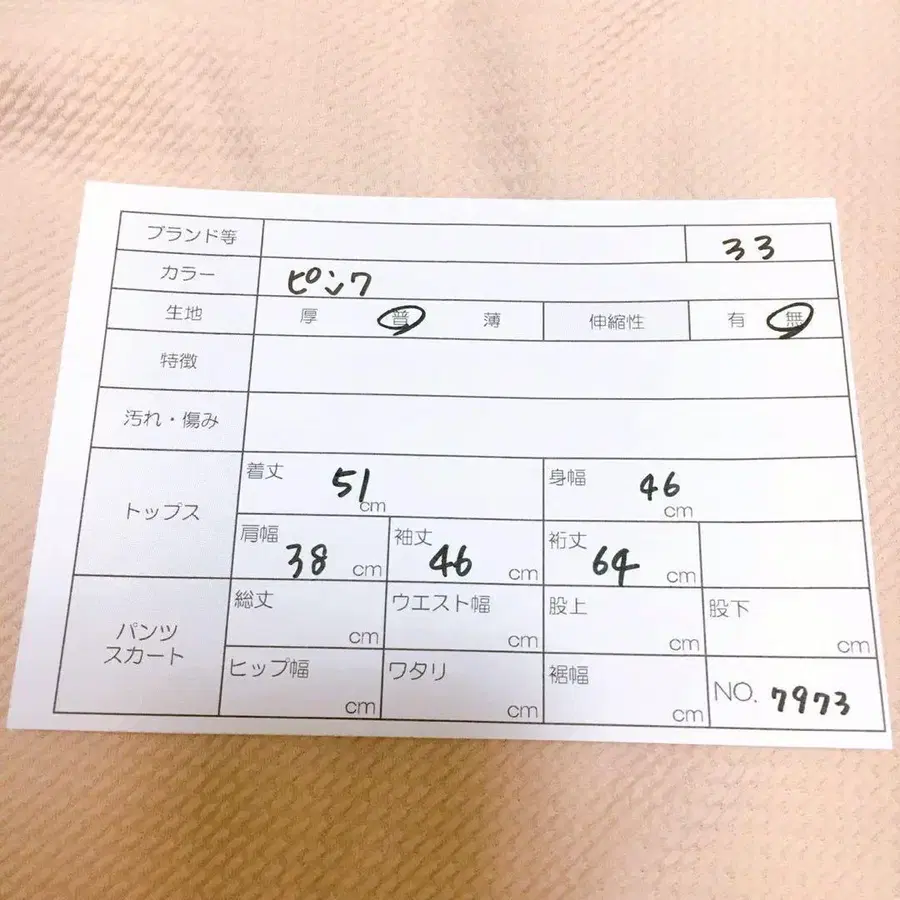 ブランド等 33
カラー ピンク
生地 厚 普 薄 伸縮性 有 無
特徴
汚れ・傷み
トップス
着丈 51 cm 身幅 46 cm
肩幅 38 cm 袖丈 46 cm 裄丈 64 cm
パンツ
スカート
総丈 cm ウエスト幅 cm 股上 cm 股下 cm
ヒップ幅 cm ワタリ cm 裾幅 cm NO. 7973